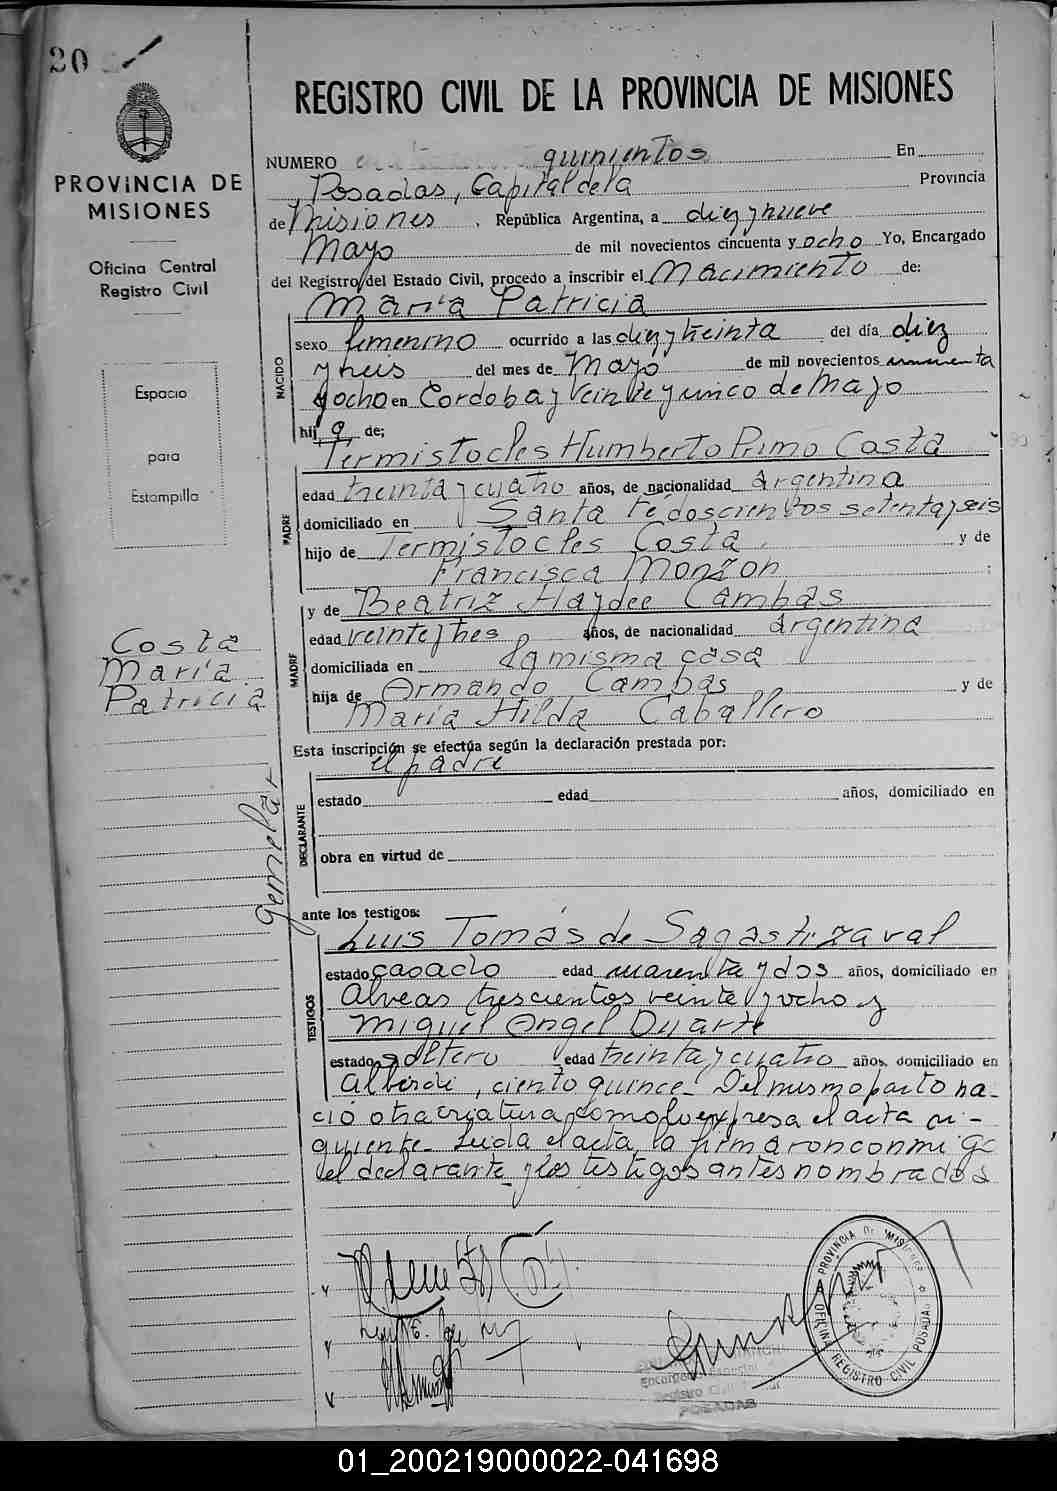 20
PROVINCIA DE
MISIONES
Oficina Central
Registro Civil
Espacio
para
Estampilla
Costa
María
Patricia
gemelar
REGISTRO CIVIL DE LA PROVINCIA DE MISIONES
NUMERO quinientos En
Posadas, Capital de la Provincia
de Misiones, República Argentina, a diez y nueve
Mayo de mil novecientos cincuenta y ocho Yo, Encargado
del Registro del Estado Civil, procedo a inscribir el Nacimiento de:
María Patricia
NACIDO
sexo femenino ocurrido a las diez y treinta del día diez
y seis del mes de Mayo de mil novecientos cincuenta
y ocho en Cordoba y Veinte y cinco de Mayo
hija de;
Termistocles Humberto Primo Costa
PADRE
edad treinta y cuatro años, de nacionalidad argentina
domiciliado en Santa Fé doscientos setenta y seis
hijo de Termistocles Costa y de
Francisca Monzon
y de Beatriz Haydee Cambas
MADRE
edad veinte y tres años, de nacionalidad argentina
domiciliada en la misma casa
hija de Armando Cambas y de
María Hilda Caballero
Esta inscripción se efectúa según la declaración prestada por:
el padre
DECLARANTE
estado edad años, domiciliado en
obra en virtud de
ante los testigos:
Luis Tomás de Sagastizaval
TESTIGOS
estado casado edad cuarenta y dos años, domiciliado en
Alvear trescientos veinte y ocho y
Miguel Angel Duarte
estado soltero edad treinta y cuatro años, domiciliado en
Alberdi, ciento quince. Del mismo parto na-
ció otra criatura, como lo expresa el acta si-
guiente. Leida el acta, la firmaron conmigo
el declarante y los testigos antes nombrados
PROVINCIA DE MISIONES
OFICINA REGISTRO CIVIL POSADAS
Registro Civil
POSADAS
01_200219000022-041698